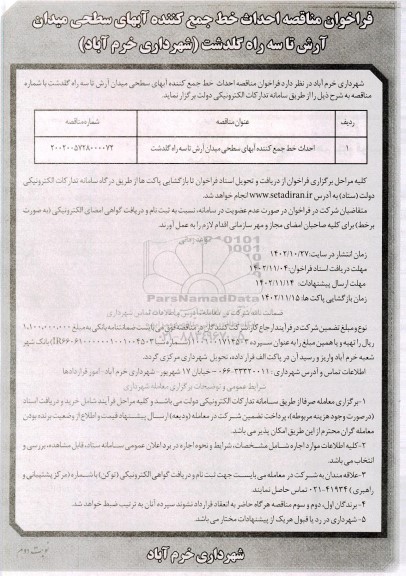 فراخوان مناقصه احداث خط جمع کننده آبهای سطحی میدان
آرش تا سه راه گلدشت (شهرداری خرم آباد)
شهرداری خرم آباد در نظر دارد فراخوان مناقصه احداث خط جمع کننده آبهای سطحی میدان آرش تا سه راه گلدشت با شماره
مناقصه به شرح ذیل را از طریق سامانه تدارکات الکترونیکی دولت برگزار نماید.
ردیف عنوان مناقصه شماره مناقصه
۱ احداث خط جمع کننده آبهای سطحی میدان آرش تا سه راه گلدشت ۲۰۰۲۰۰۵۷۲۸۰۰۰۰۷۲
کلیه مراحل برگزاری فراخوان از دریافت و تحویل اسناد فراخوان تا بازگشایی پاکت ها از طریق درگاه سامانه تدارکات الکترونیکی
دولت (ستاد) به آدرس www.setadiran.ir انجام خواهد شد.
متقاضیان شرکت در فراخوان در صورت عدم عضویت در سامانه، نسبت به ثبت نام و دریافت گواهی امضای الکترونیکی (به صورت
برخط) برای کلیه صاحبان امضای مجاز و مهر سازمانی اقدام لازم را به عمل آورند.
زمان انتشار در سایت: ۱۴۰۲/۱۰/۲۷
مهلت دریافت اسناد فراخوان: ۱۴۰۲/۱۱/۰۴
مهلت ارسال پیشنهادات: ۱۴۰۲/۱۱/۱۴
زمان بازگشایی پاکت ها: ۱۴۰۲/۱۱/۱۵
ParsNamadData
نوع و مبلغ تضمین شرکت در فرآیند ارجاع کار شرکت کنندگان در مناقصه فوق می بایست ضمانتنامه بانکی به مبلغ
ریال را تهیه و یا همین مبلغ را به عنوان سپرده بانک شهر
شعبه خرم آباد واریز و رسید آن در پاکت الف قرار داده، تحویل شهرداری مرکزی گردد.
اطلاعات تماس و آدرس شهرداری: خیابان ۱۷ شهریور- شهرداری خرم آباد- امور قراردادها
شرایط عمومی و توضیحات برگزاری معامله شهرداری
۱-برگزاری معامله صرفا از طریق سامانه تدارکات الکترونیکی دولت می باشد و کلیه مراحل فرآیند شامل خرید و دریافت اسناد
(در صورت وجود هزینه مربوطه)، پرداخت تضمین شرکت در معامله (ودیعه) ارسال پیشنهاد قیمت و اطلاع از وضعیت برنده بودن
معامله گران محترم از این طریق امکان پذیر می باشد.
۲-کلیه اطلاعات موارد اجاره شامل مشخصات، شرایط و نحوه اجاره در برد اعلان عمومی سامانه ستاد، قابل مشاهده، بررسی و
انتخاب می باشد.
۳-علاقه مندان به شرکت در معامله می بایست جهت ثبت نام و دریافت گواهی الکترونیکی (توکن) با شماره (مرکز پشتیبانی و
راهبری) ۴۱۹۳۴-۰۲۱ تماس حاصل نمایند.
۴-برندگان اول، دوم و سوم مناقصه هرگاه حاضر به انعقاد قرارداد نشوند سپرده آنان به ترتیب ضبط خواهد شد.
۵-شهرداری در رد یا قبول هریک از پیشنهادات مختار می باشد.
نوبت دوم
شهرداری خرم آباد